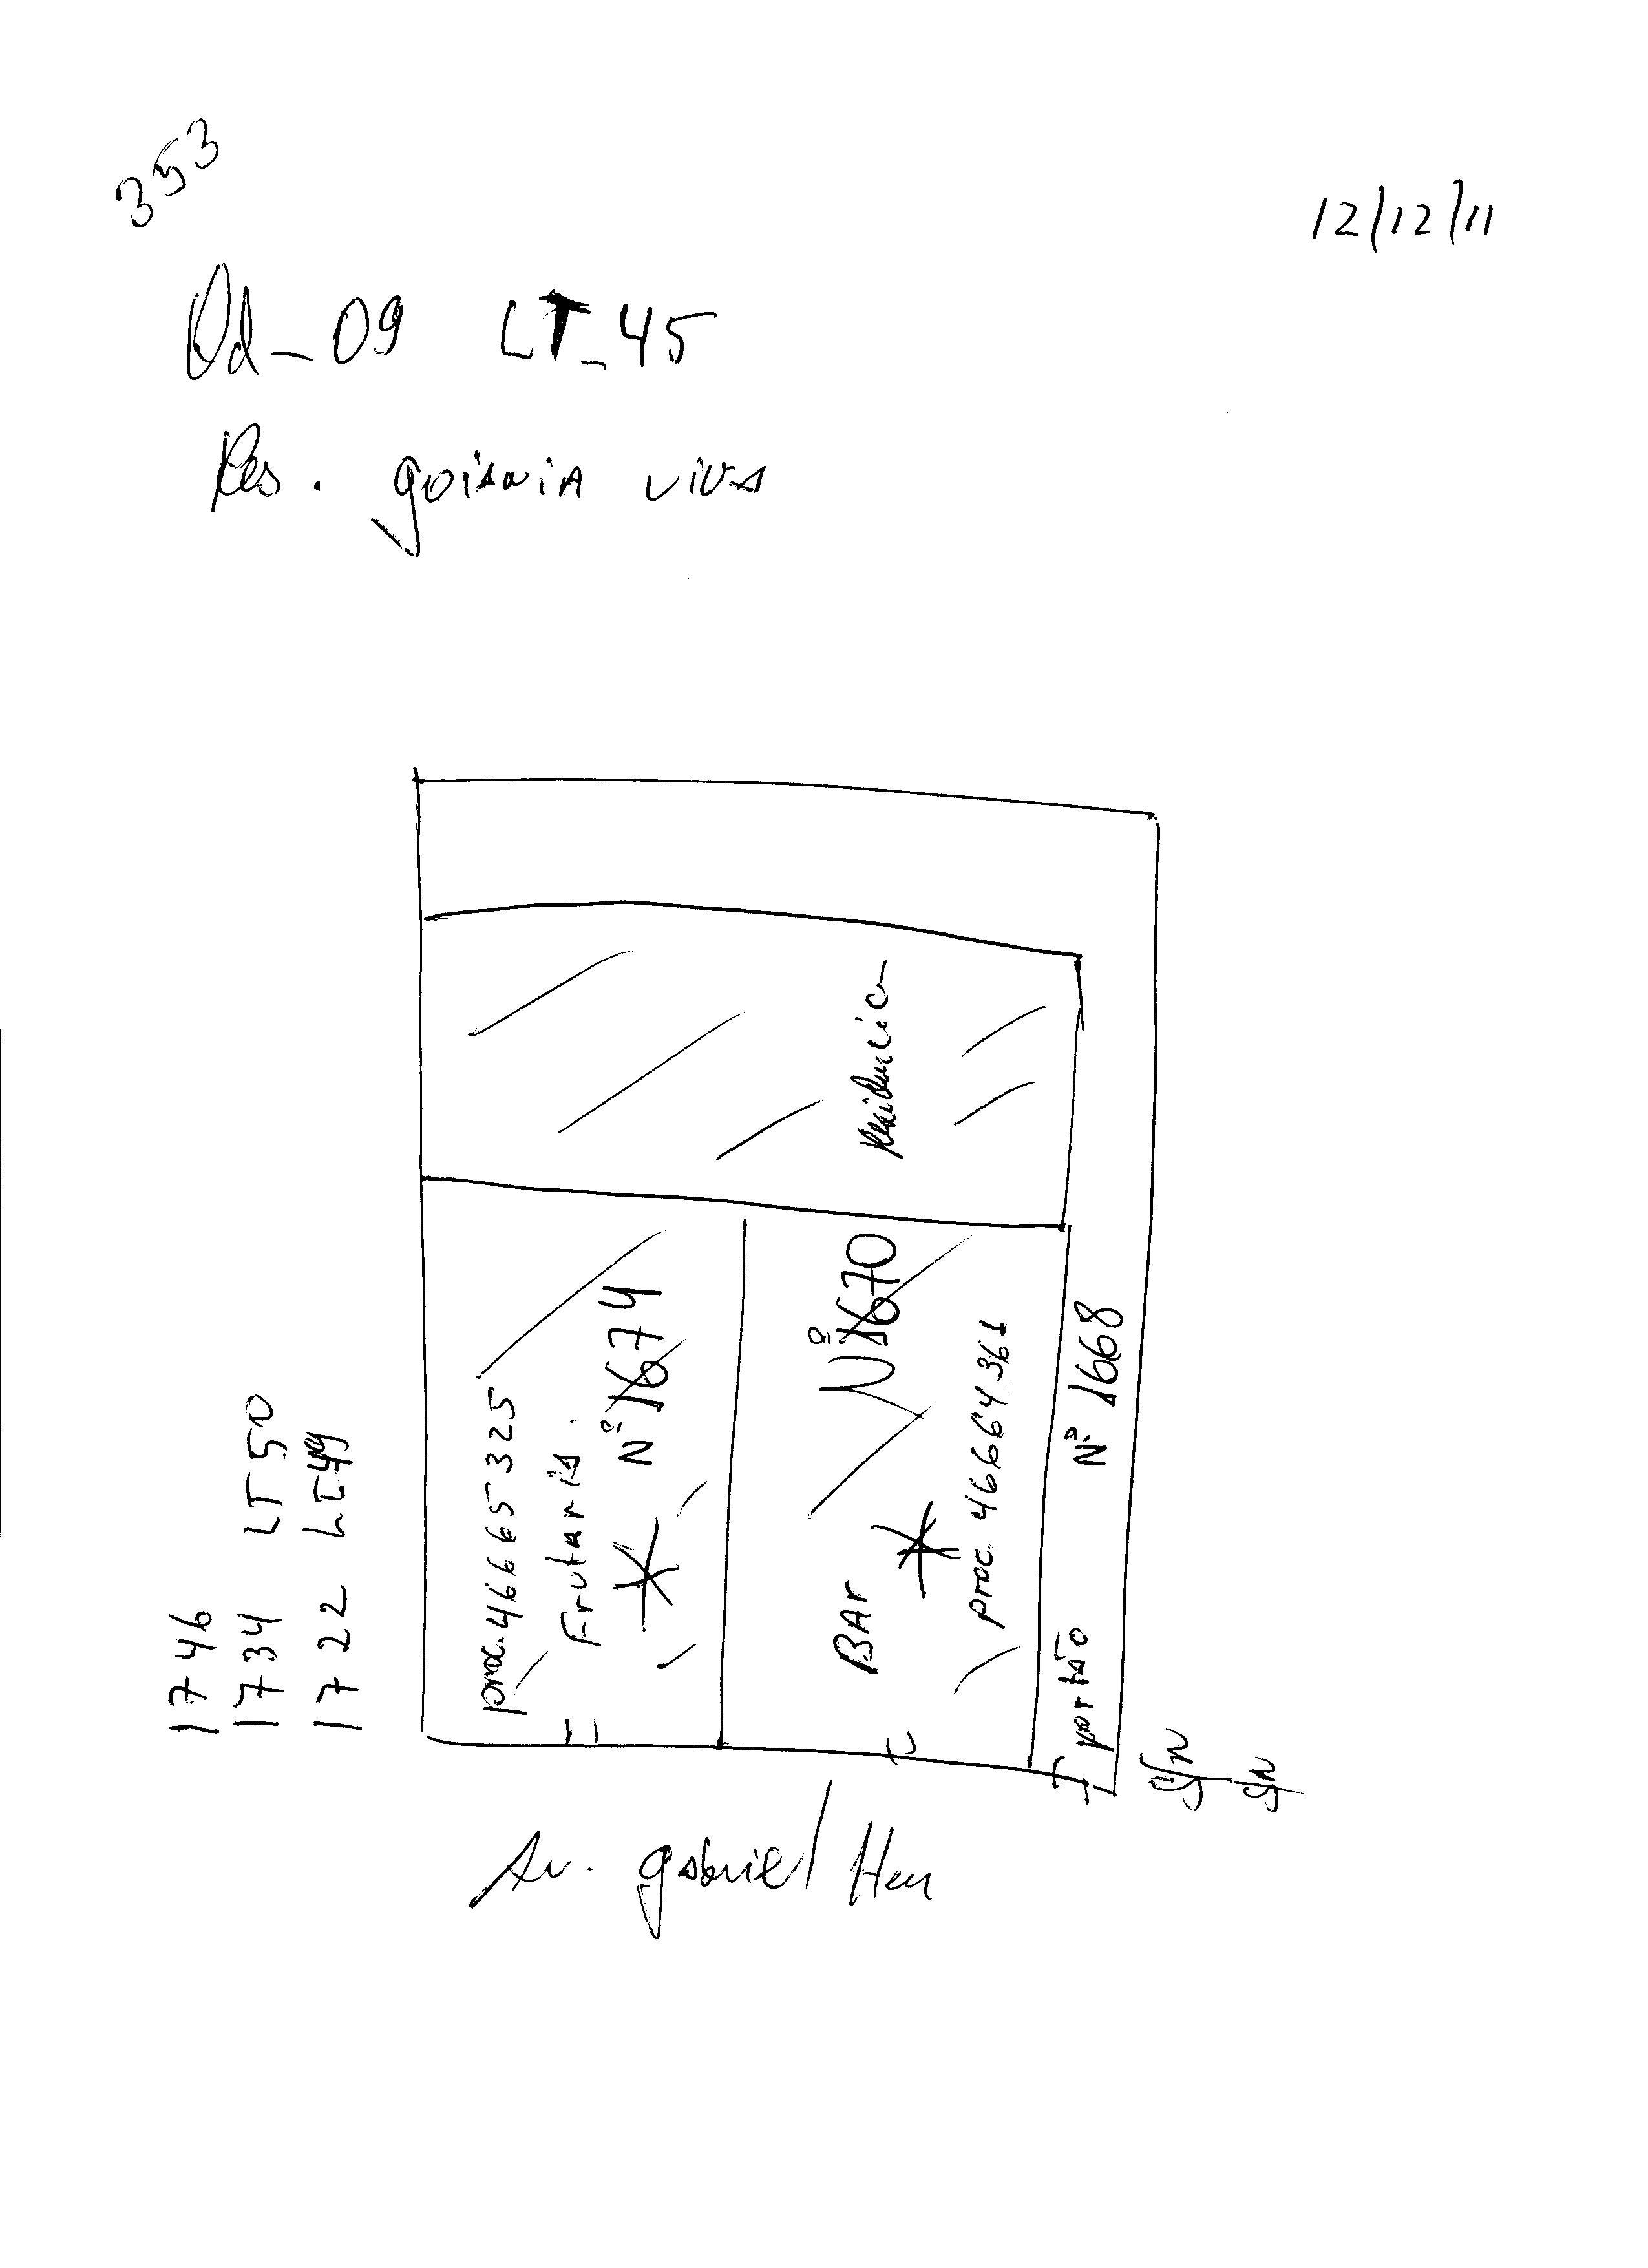 353
12/12/11
Qd_09 LT_45
Res. goiania viva
Residencia
proc. 46665325
Frutaria.
Nº 1674
Nº 1670
BAr
proc. 46664361
portão Nº 1668
1746
1734 LT 50
1722 LT 49
S/N
S/N
Av. gabriel Hen